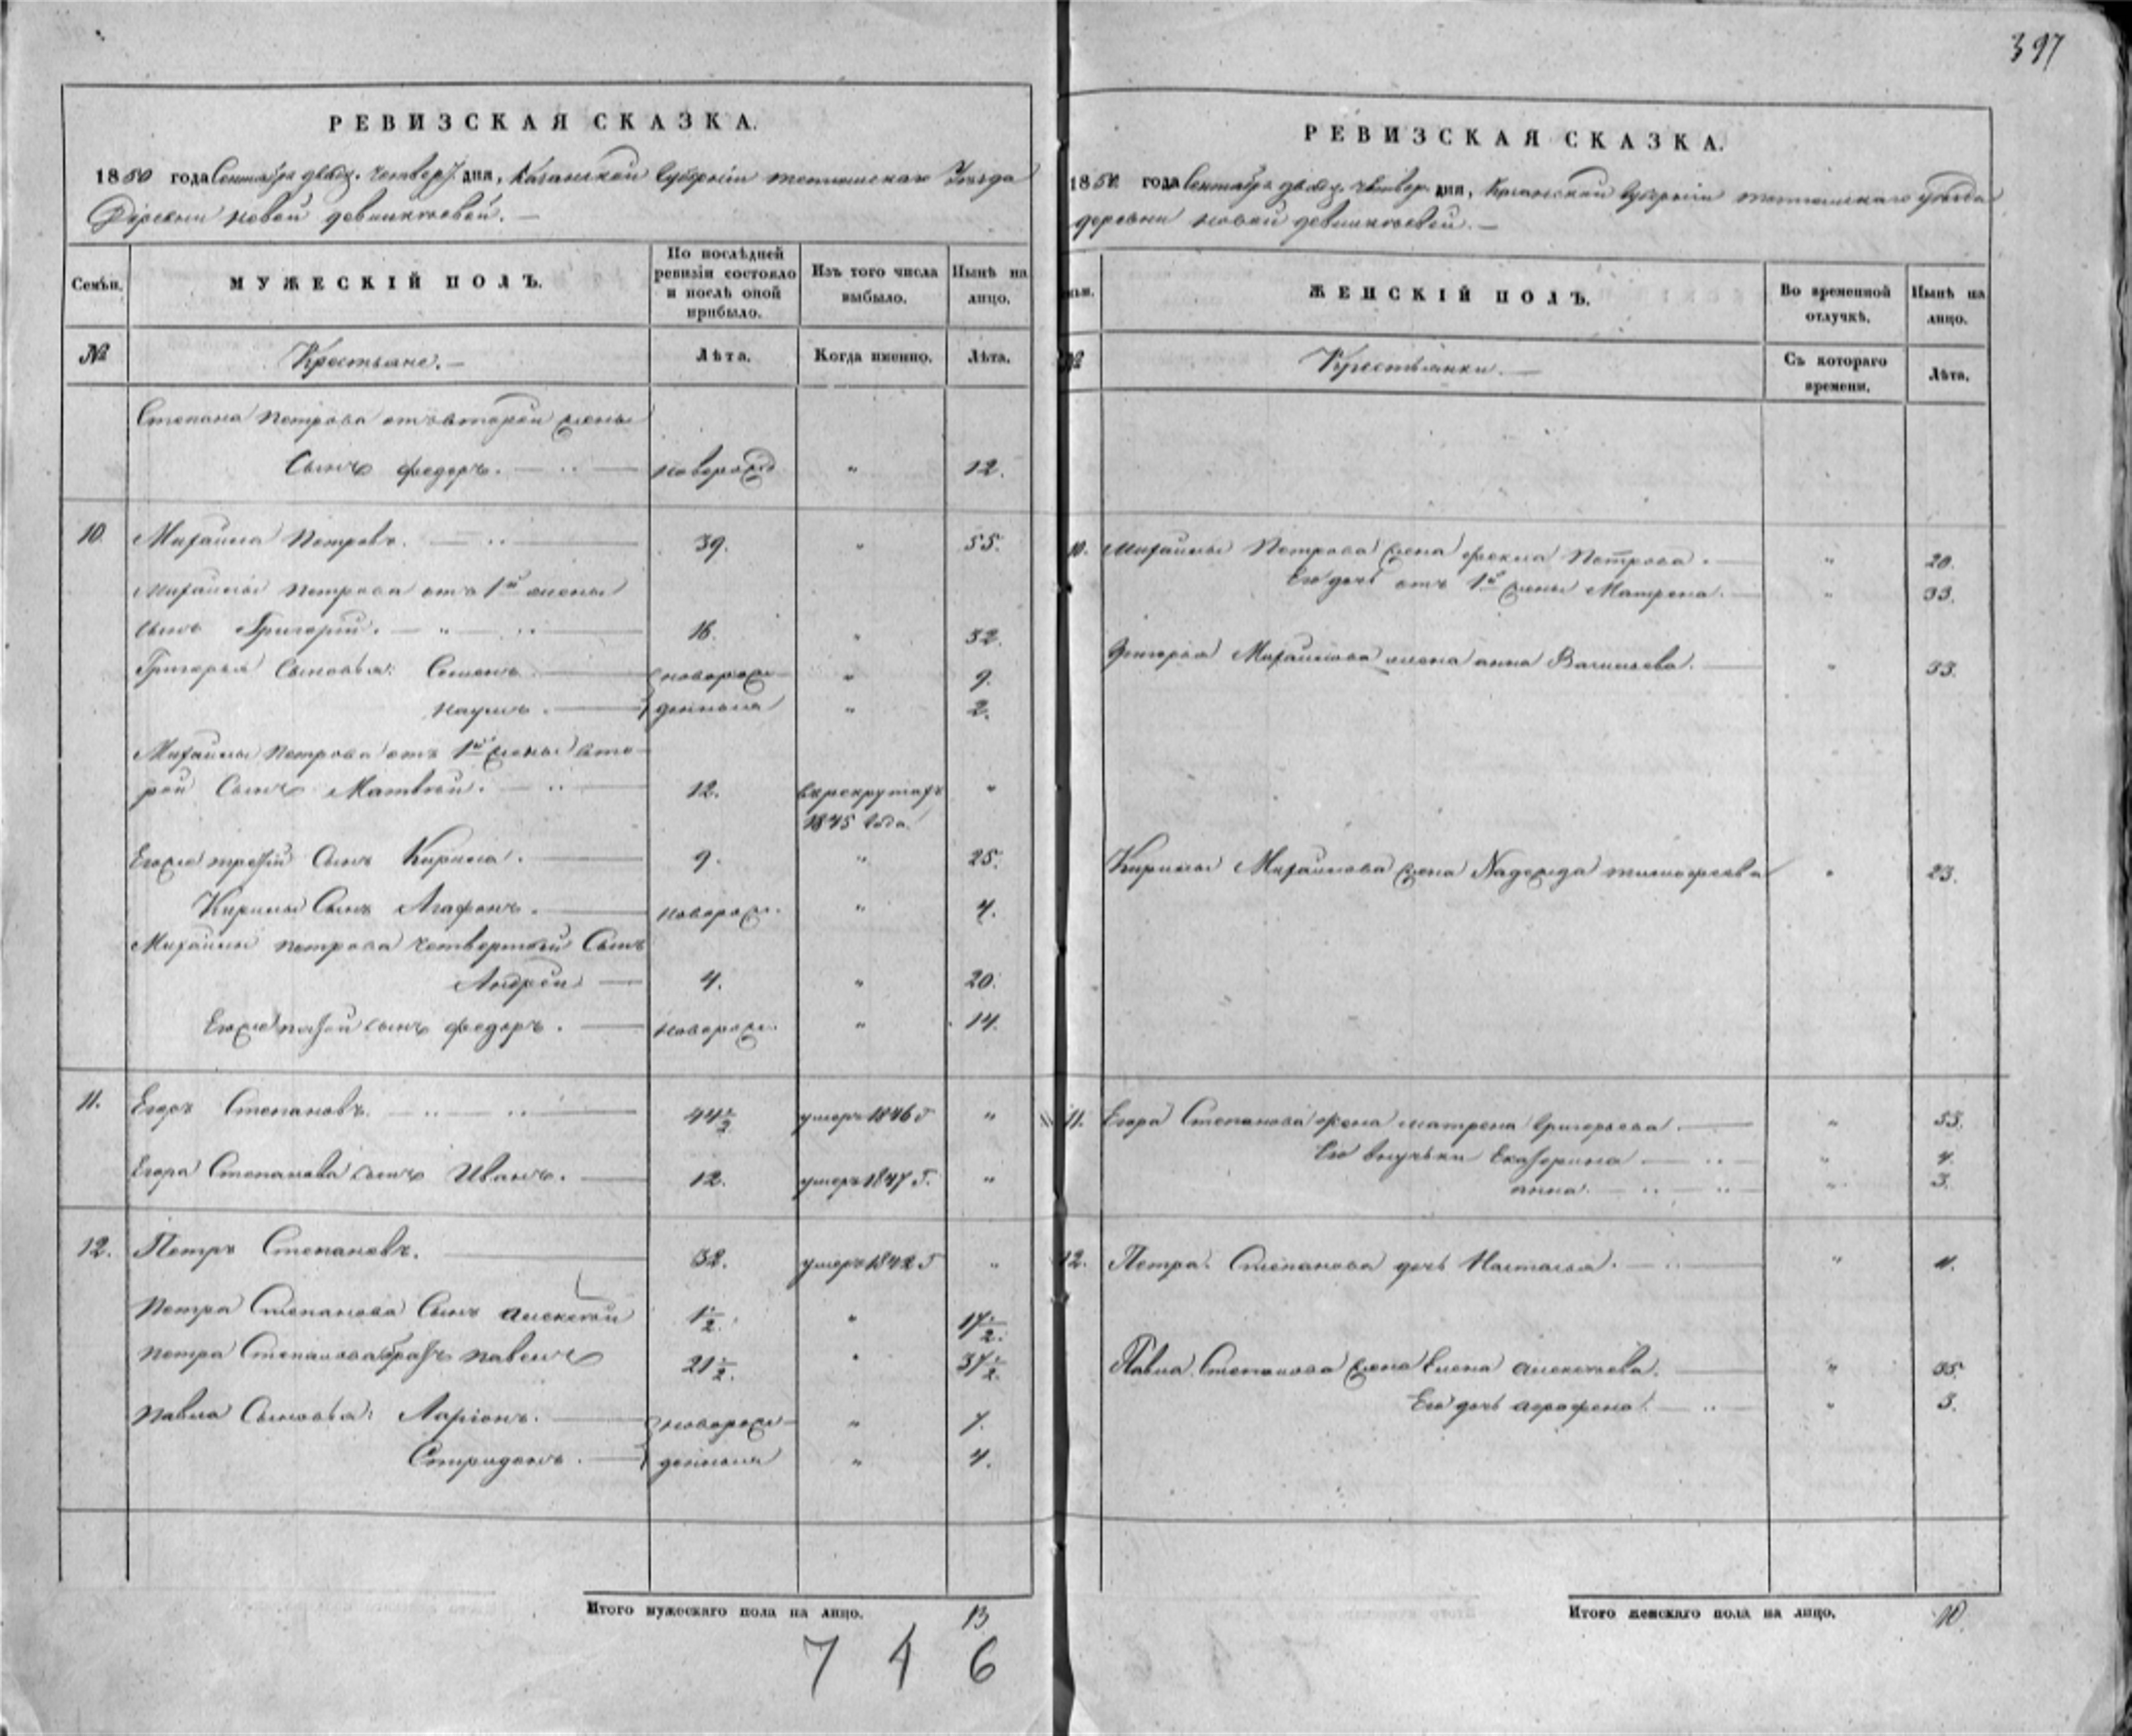 397
РЕВИЗСКАЯ СКАЗКА.
1850 года Сентября двадц. четвер. дня, Казанской Губерніи тетюшскаго Уезда
Деревни новой
Семьи.
МУЖЕСКІЙ ПОЛЪ.
По послѣдней ревизіи состояло и послѣ оной прибыло.
Изъ того числа выбыло.
Нынѣ на лицо.
№
Крестьяне.
Лѣта.
Когда именно.
Лѣта.
Степана Петрова отъ второй жены
Сынъ федоръ. новорожд „ 12.
10. Михайла Петровъ. 39. „ 55.
Михайлы Петрова отъ 1й жены
сынъ Григорій. 16. „ 32.
Григорья Сыновья: Семенъ новорож- „ 9.
наумъ. денныя „ 2.
Михайлы Петрова отъ 1й жены вто-
рой Сынъ Матвей. 12. в рекрутахъ „
1845 года
Егоже третій Сынъ Кирила. 9. „ 25.
Кирилы Сынъ Агафонъ. новорож. „ 4.
Михайлы петрова четвертый Сынъ
Андрей 4. „ 20.
Егоже пятой сынъ федоръ. новорож. „ 14.
11. Егоръ Степановъ. 44½ умеръ 1846 г „
Егора Степанова сынъ Иванъ. 12. умеръ 1847 г. „
12. Петръ Степановъ. 32. умеръ 1842 г „
Петра Степанова Сынъ алексей 1½. „ 17½.
петра Степанова братъ павелъ 21½. „ 37½.
павла Сыновья: Ларіонъ. новорож- „ 7.
Спридонъ. денныя „ 4.
Итого мужескаго пола на лицо. 13
7 4 6
РЕВИЗСКАЯ СКАЗКА.
1850 года Сентября двадц. четвер. дня, Казанской Губерніи тетюшскаго уезда
деревни новой
ЖЕНСКІЙ ПОЛЪ.
Во временной отлучкѣ.
Нынѣ на лицо.
№
Крестьянки.
Съ котораго времени.
Лѣта.
10. Михайлы Петрова жена фекла Петрова. „ 20.
Его дочь отъ 1й жены Матрена. „ 33.
Григорья Михайлова жена анна Васильева. „ 33.
Кирилы Михайлова жена Надежда тимофеева „ 23.
11. Егора Степанова жена матрена григорьева. „ 55.
Его внучьки Екатерина „ 4.
анна. „ 3.
12. Петра Степанова дочь Настасья. „ 11.
Павла Степанова жена Елена алексеева. „ 35.
Его дочь аграфена. „ 3.
Итого женскаго пола на лицо. 10.